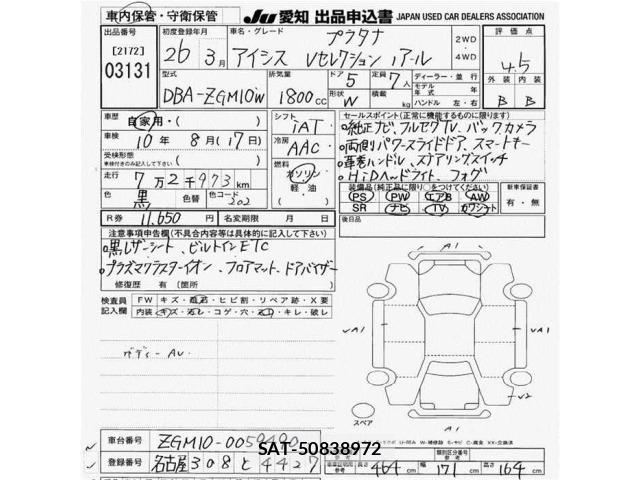 車内保管・守衛保管
JU 愛知 出品申込書 JAPAN USED CAR DEALERS ASSOCIATION
出品番号
[2172]
03131
初度登録年月
26年 3月
車名・グレード
プラタナ
アイシス Vセレクション ノアール
2WD
・
4WD
評価点
4.5
外装 内装
B B
型式
DBA-ZGM10W
排気量
1800cc
ドア
5
定員
7人
形状
W
積載量
kg
ディーラー・並行
モデル年式 年
ハンドル 左・右
車歴
自家用・( )
車検
10年 8月 (17日)
受検形態
(車検付きのみ記入して下さい)
走行
7万2千973km
色
黒
色替
色コード
202
シフト
iAT
冷房
AAC
燃料
ガソリン
軽・油
セールスポイント(正常に機能するものに限ります)
純正ナビ、フルセグTV、バックカメラ
両側パワースライドドア、スマートキー
革巻ハンドル、ステアリングスイッチ
HiDヘッドライト、フォグ
装備品(純正品に限り○をつけてください)
PS PW エアB AW
SR ナビ TV カワシート
新車保証書
有・無
後日品
R券 11,650円
名変期限 月 日
注意事項申告欄(不具合内容等は具体的に記入して下さい)
黒レザーシート、ビルトインETC
プラズマクラスターイオン、フロアマット、ドアバイザー
修復歴 有 〔箇所 〕
検査員記入欄
FW キズ・補習・ヒビ割・リペア跡・X要
内装 キズ・汚レ・コゲ・穴・キレ・破レ
ボディー AU
A1
UA1
UA1
U2
A1
スペア
車台番号
ZGM10-0059490
登録番号
名古屋 308 と 4427
SAT-50838972
類別区分番号
長さ 464cm
幅 171cm
高さ 164cm